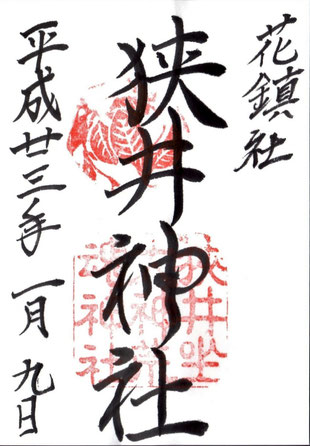 花鎮社
狭井神社
平成廿三年一月九日
狭井坐
大神荒
魂神社